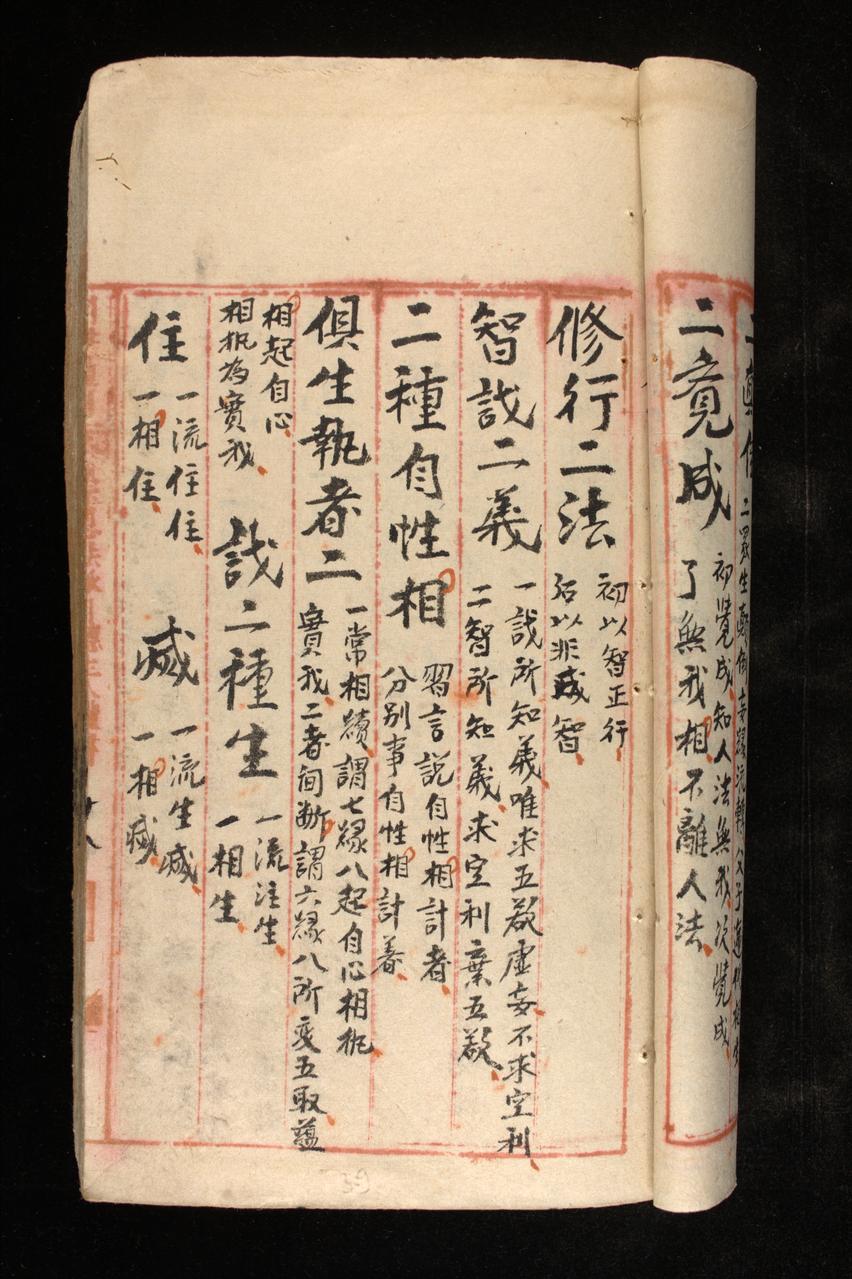 二眾生顛倒妄緣流轉父子
二竟成 初覺成知人法無我次覺成
了無我相不離人法
修行二法 初以智正行
后以非識智
智識二義 一識所知義唯求五欲虛妄不求空利
二智所知義求空利棄五欲
二種自性相 習言說自性相計者
分別事自性相計著
俱生執者二 一常相續謂七緣八起自心相執
實我二者間斷謂六緣八所变五取蘊
相起自心
相执為實我 識二種生 一流注生
一相生
住 一流住住 滅 一流生滅
一相住 一相滅